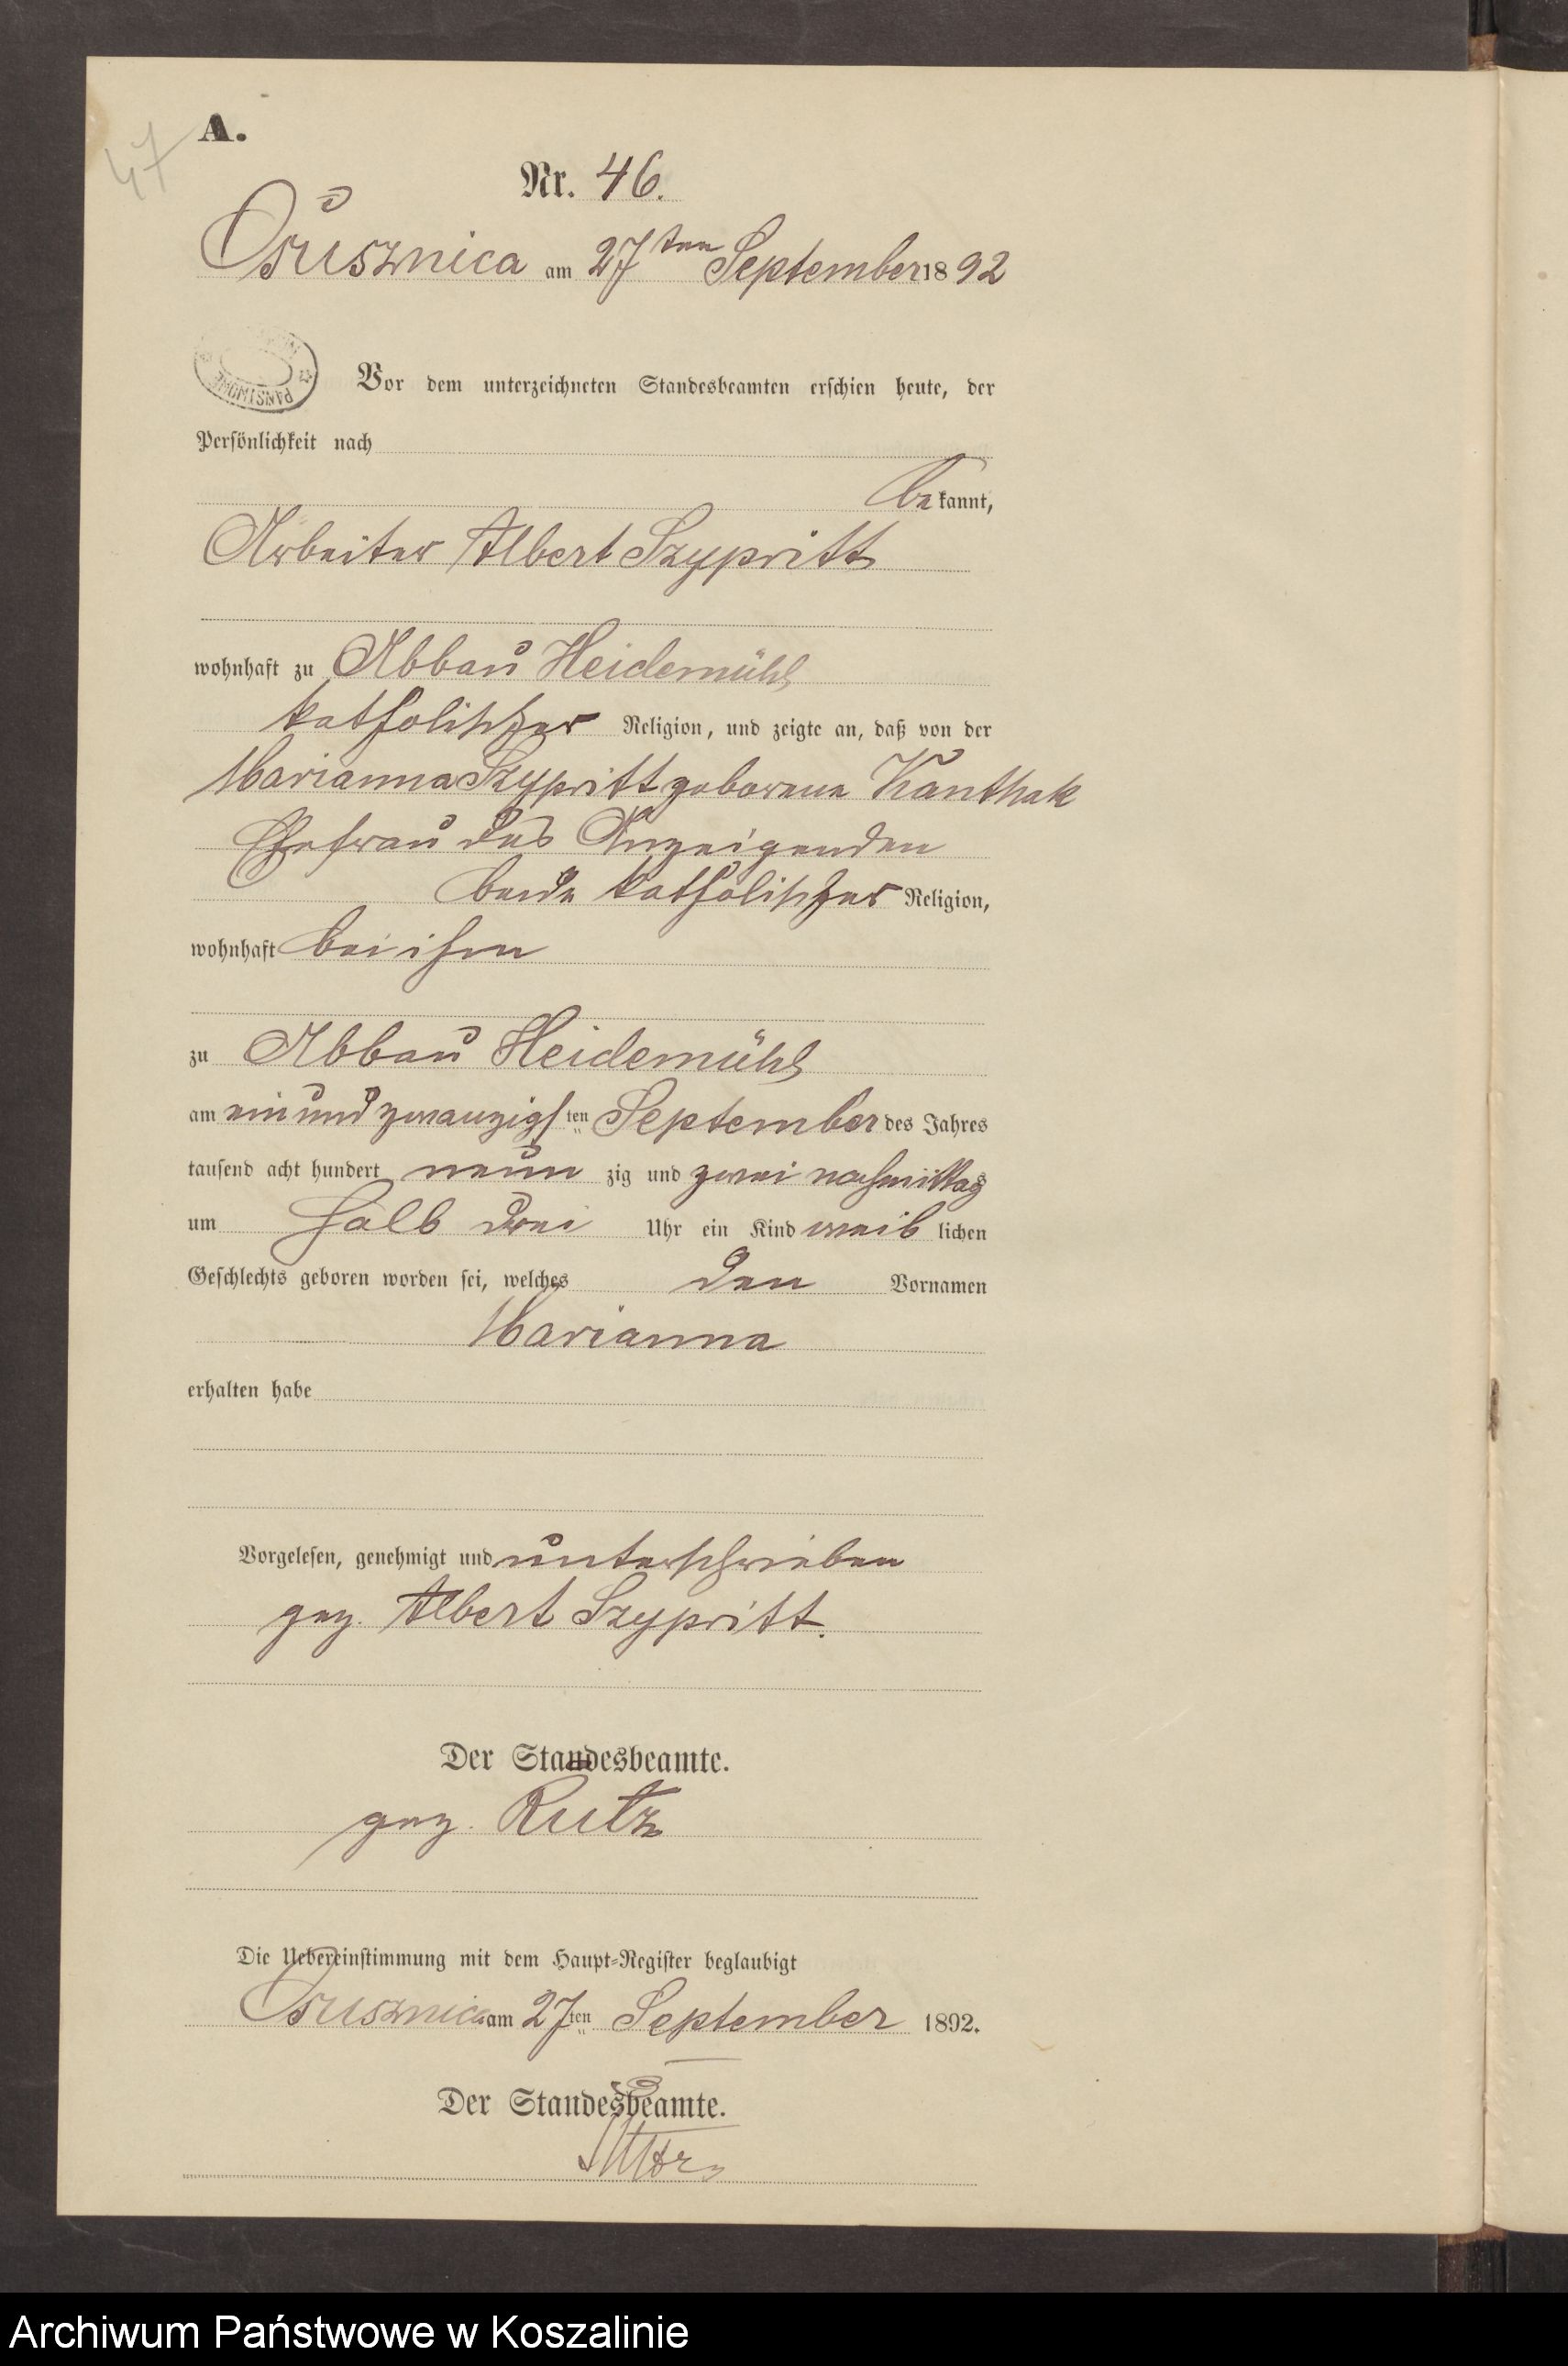 47
A.
Nr. 46.
Osusznica am 27ten September 1892
PAŃSTWOWE
Vor dem unterzeichneten Standesbeamten erschien heute, der
Persönlichkeit nach
bekannt,
Arbeiter Albert Szypritt
wohnhaft zu Abbau Heidemühl
katholischer Religion, und zeigte an, daß von der
Marianna Szypritt geborene Kanthak
Ehefrau des Anzeigenden
beide katholischer Religion,
wohnhaft bei ihm
zu Abbau Heidemühl
am einundzwanzigsten September des Jahres
tausend acht hundert neunzig und zwei nachmittag
um halb drei Uhr ein Kind weiblichen
Geschlechts geboren worden sei, welches den Vornamen
Marianna
erhalten habe
Vorgelesen, genehmigt und unterschrieben
gez. Albert Szypritt.
Der Standesbeamte.
gez. Rutz
Die Uebereinstimmung mit dem Haupt-Register beglaubigt
Osusznica am 27ten September 1892.
Der Standesbeamte.
Archiwum Państwowe w Koszalinie